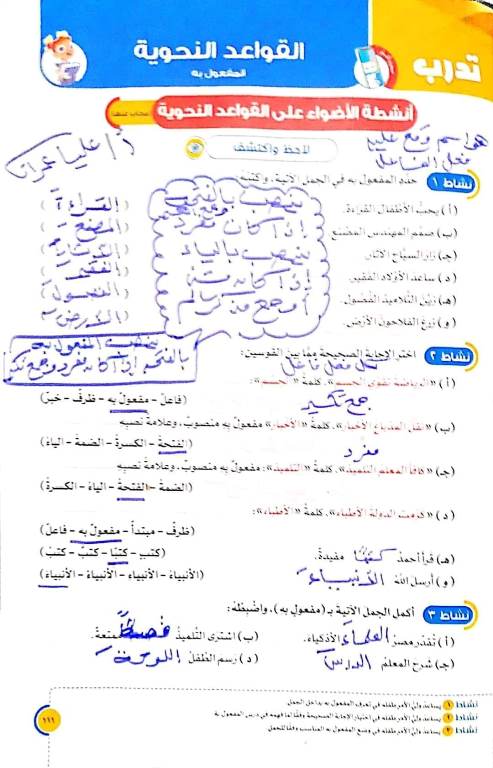 تدرب
القواعد النحوية
المفعول به
أنشطة الأضواء على القواعد النحوية
لاحظ واكتشف
هو اسم وقع عليه
فعل الفاعل
نشاط ١ حدد المفعول به في الجمل الآتية، واكتبه
(أ) يحبُّ الأطفال القراءة. (القراءة)
(ب) صمّم المهندس المصنع (المصنع)
(جـ) زار السيّاح الآثار.
(د) ساعد الأولاد الفقير. (الفقير)
(هـ) زيّن التلاميذ الفصول. (الفصول)
(و) زرع الفلاحون الأرض. (الأرض)
ينصب بالفتحة
إذا كان مفرد
ينصب بالياء
إذا كان مثنى
أو جمع مذكر سالم
ينصب المفعول به
بالفتحة إذا كان مفرد وجمع تكسير
نشاط ٢ اختر الإجابة الصحيحة ممّا بين القوسين:
لكل فعل فاعل
(أ) «الرياضة تقوي الجسم». كلمة «الجسم»:
(فاعل - مفعول به - ظرف - خبر)
جمع تكسير
(ب) «نقل المذياع الأخبار». كلمة «الأخبار» مفعول به منصوب، وعلامة نصبه
(الفتحة - الكسرة - الضمة - الياء)
مفرد
(جـ) «كافأ المعلم التلميذ». كلمة «التلميذ»: مفعول به منصوب، وعلامة نصبه
(الضمة - الفتحة - الياء - الكسرة)
(د) «كرمت الدولة الأطباء». كلمة «الأطباء»:
(ظرف - مبتدأ - مفعول به - فاعل)
(هـ) قرأ أحمد كتبًا مفيدة. (كتب - كتبًا - كتبٌ - كتبُ)
(و) أرسل الله الأنبياءَ (الأنبياءُ - الأنبياء - الأنبياء - الأنبياءَ)
نشاط ٣ أكمل الجمل الآتية بـ (مفعول به)، واضبطه:
(أ) تقدّر مصرُ العلماءَ الأذكياء. (ب) اشترى التلميذُ قصصًا ممتعة.
(جـ) شرح المعلم الدرسَ (د) رسم الطفل اللوحةَ
نشاط ١ يساعد ولي الأمر طفله في تعرف المفعول به بداخل الجمل
نشاط ٢ يساعد ولي الأمر طفله في اختيار الإجابة الصحيحة وفقًا لما فهمه في درس المفعول به
نشاط ٣ يساعد ولي الأمر طفله في وضع المفعول به المناسب وفقًا للجمل
١١١